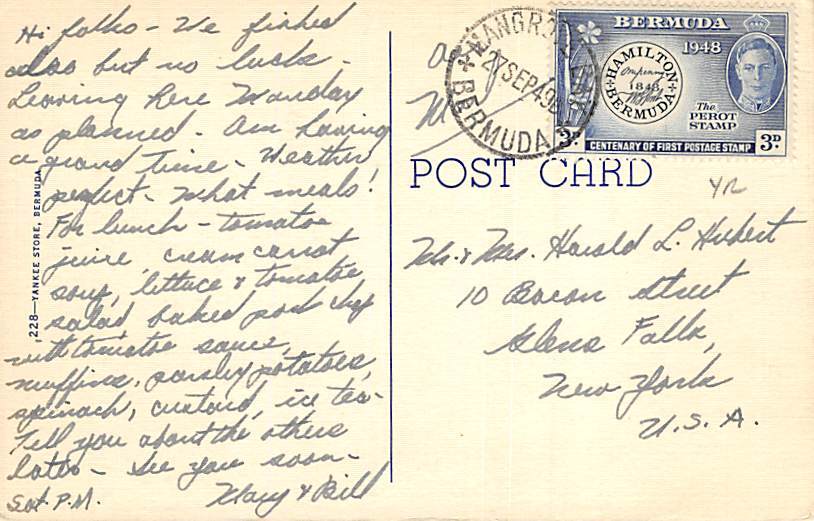 Hi folks - We fished
also but no luck -
Leaving here Monday
as planned - Am having
a grand time - Weather
perfect - What meals!
For lunch - tomatoe
juice, cream carrot
soup, lettuce & tomatoe
salad, baked pork chop
with tomatoe sauce,
muffins, parsley potatoes,
spinach, custard, ice tea -
Tell you about the others
later - See you soon -
Sat. P.M. Mary & Bill
228—YANKEE STORE, BERMUDA
MANGR
27 SEP 49
BERMUDA
BERMUDA
1948
HAMILTON
1848
BERMUDA
The
PEROT
STAMP
3D 3D
CENTENARY OF FIRST POSTAGE STAMP
POST CARD
YR
Mr. & Mrs. Harold L. Hubert
10 Bacon Street
Glens Falls,
New York
U.S.A.